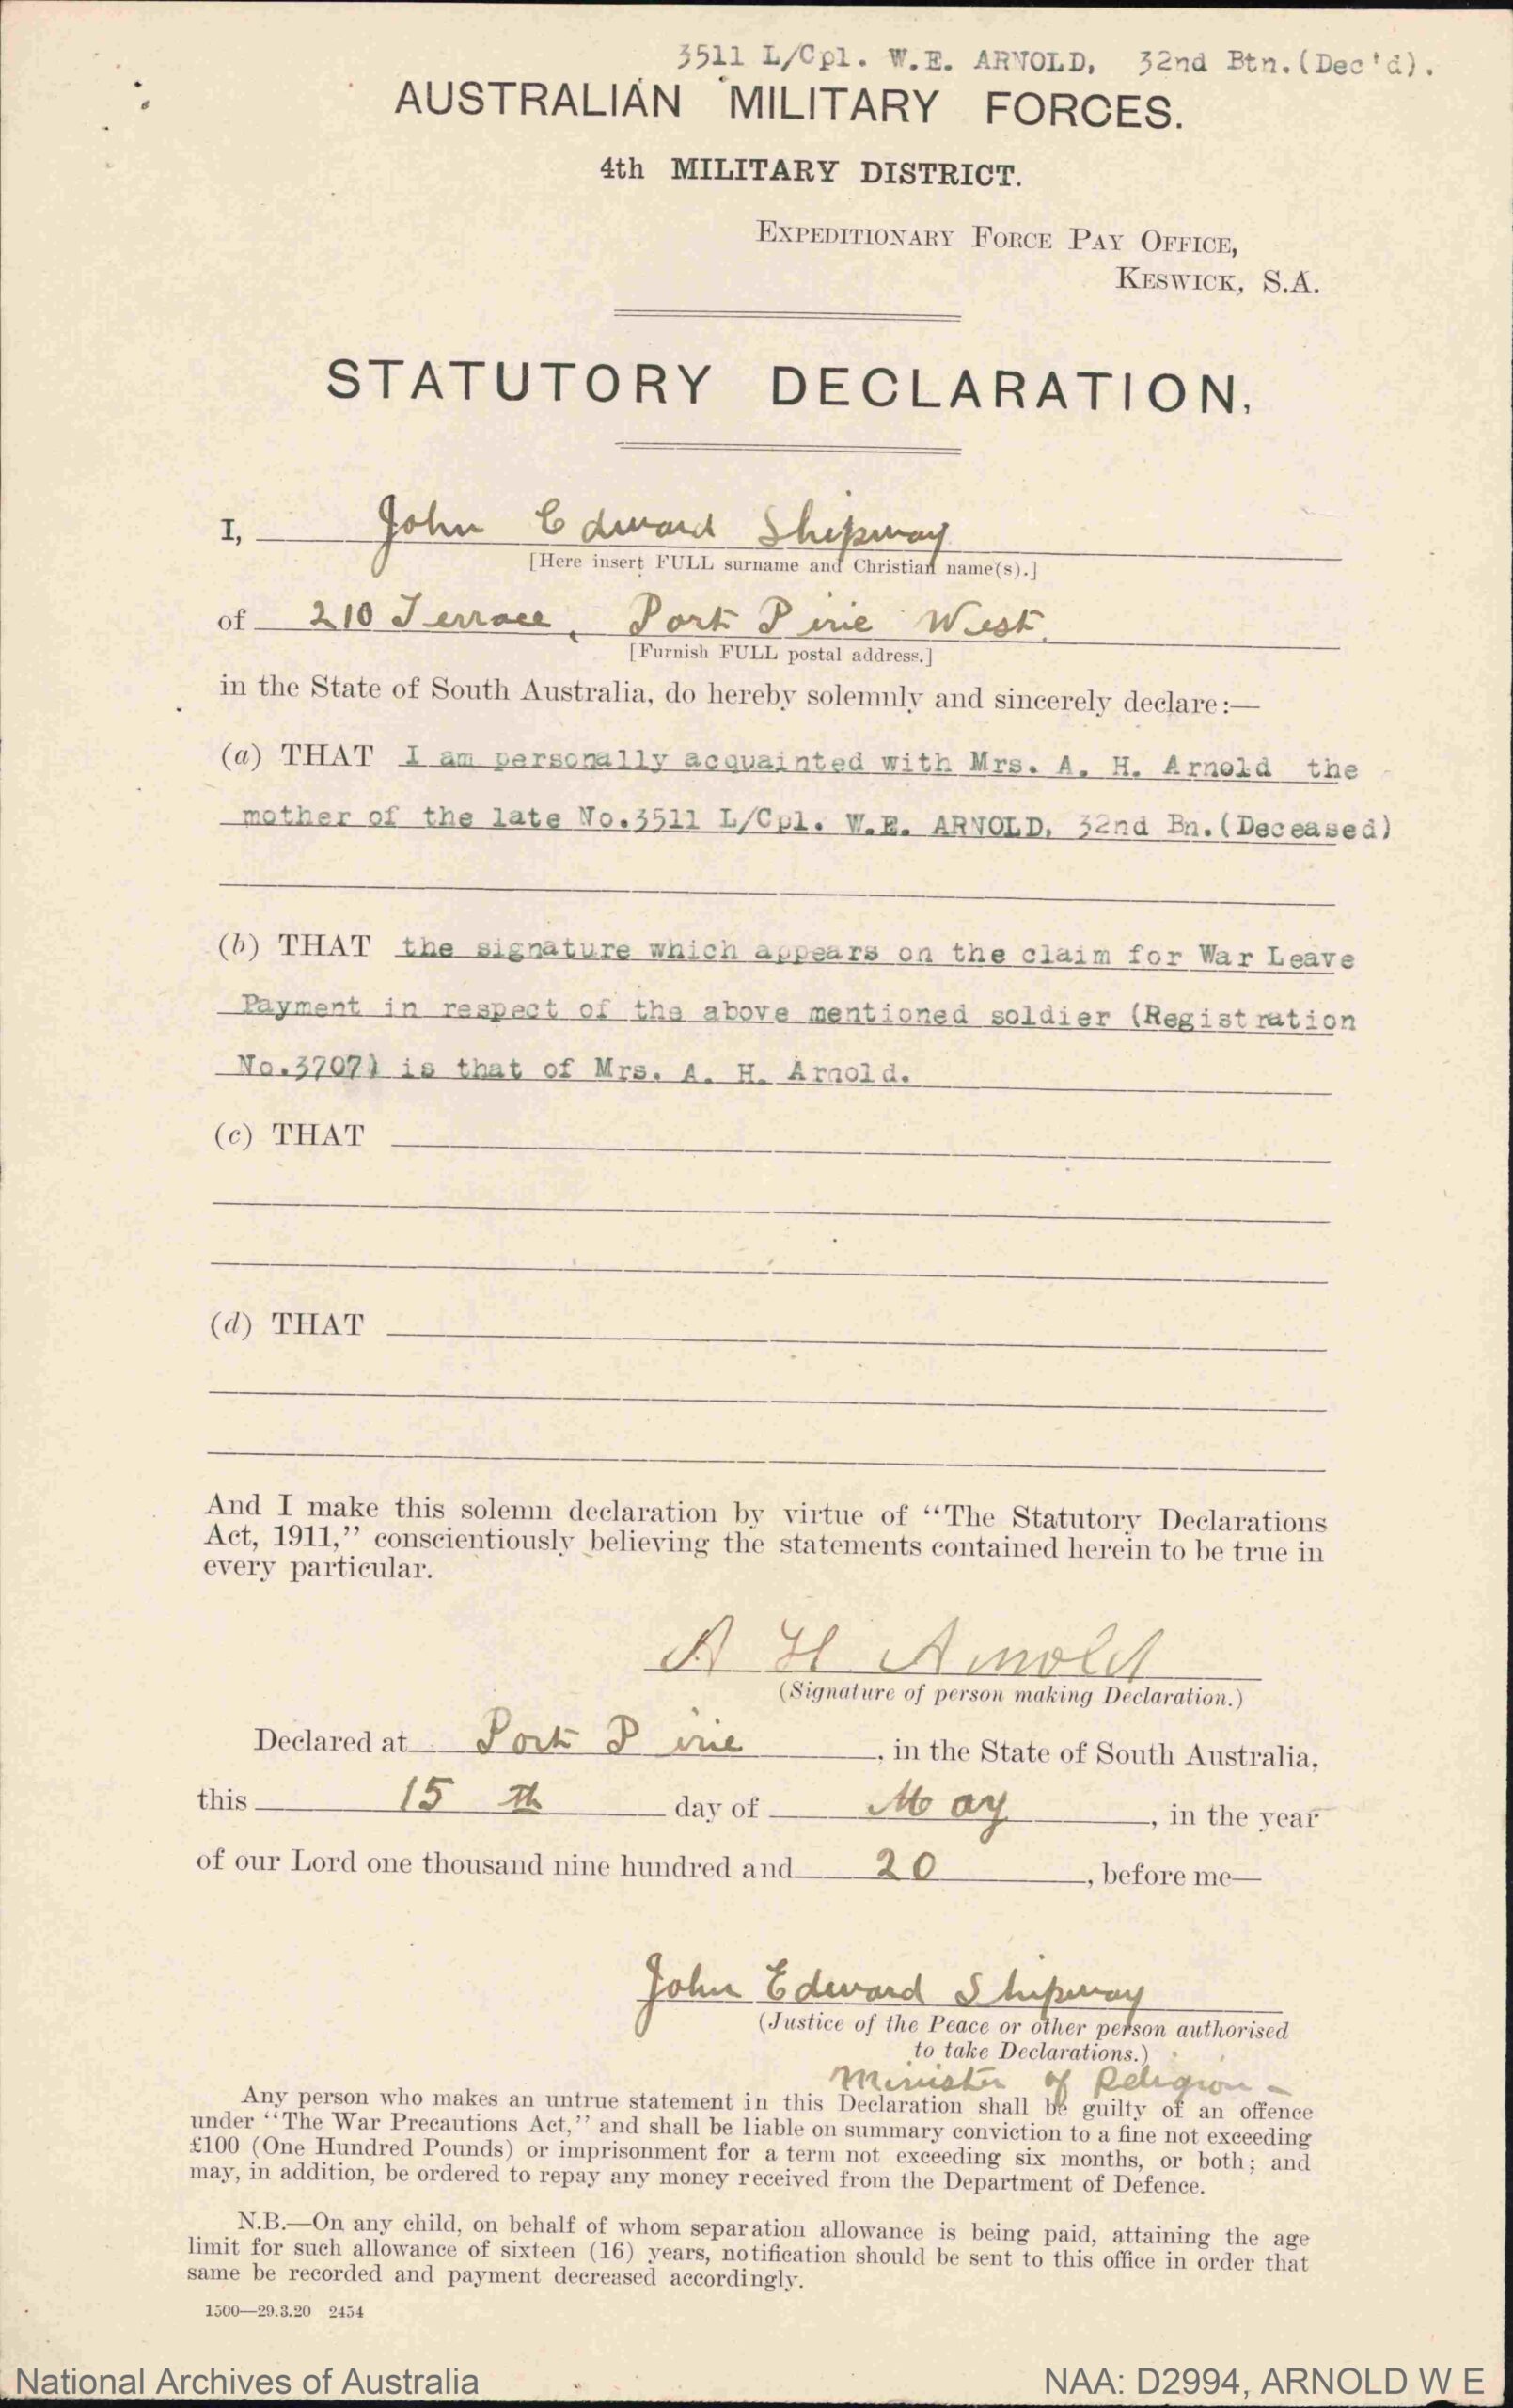 3511 L/Cpl. W.E. ARNOLD, 32nd Btn.(Dec'd).
AUSTRALIAN MILITARY FORCES.
4th MILITARY DISTRICT.
EXPEDITIONARY FORCE PAY OFFICE,
KESWICK, S.A.
STATUTORY DECLARATION.
I, John Edward Shipway
[Here insert FULL surname and Christian name(s).]
of 210 Terrace, Port Pirie West.
[Furnish FULL postal address.]
in the State of South Australia, do hereby solemnly and sincerely declare:—
(a) THAT I am personally acquainted with Mrs. A. H. Arnold the
mother of the late No.3511 L/Cpl. W.E. ARNOLD, 32nd Bn.(Deceased)
(b) THAT the signature which appears on the claim for War Leave
Payment in respect of the above mentioned soldier (Registration
No.3707) is that of Mrs. A. H. Arnold.
(c) THAT
(d) THAT
And I make this solemn declaration by virtue of “The Statutory Declarations
Act, 1911,” conscientiously believing the statements contained herein to be true in
every particular.
A H Arnold
(Signature of person making Declaration.)
Declared at Port Pirie, in the State of South Australia,
this 15 th day of May, in the year
of our Lord one thousand nine hundred and 20, before me—
John Edward Shipway
(Justice of the Peace or other person authorised
to take Declarations.)
Minister of Religion -
Any person who makes an untrue statement in this Declaration shall be guilty of an offence
under “The War Precautions Act,” and shall be liable on summary conviction to a fine not exceeding
£100 (One Hundred Pounds) or imprisonment for a term not exceeding six months, or both; and
may, in addition, be ordered to repay any money received from the Department of Defence.
N.B.—On any child, on behalf of whom separation allowance is being paid, attaining the age
limit for such allowance of sixteen (16) years, notification should be sent to this office in order that
same be recorded and payment decreased accordingly.
1500—29.3.20 2454
National Archives of Australia
NAA: D2994, ARNOLD W E